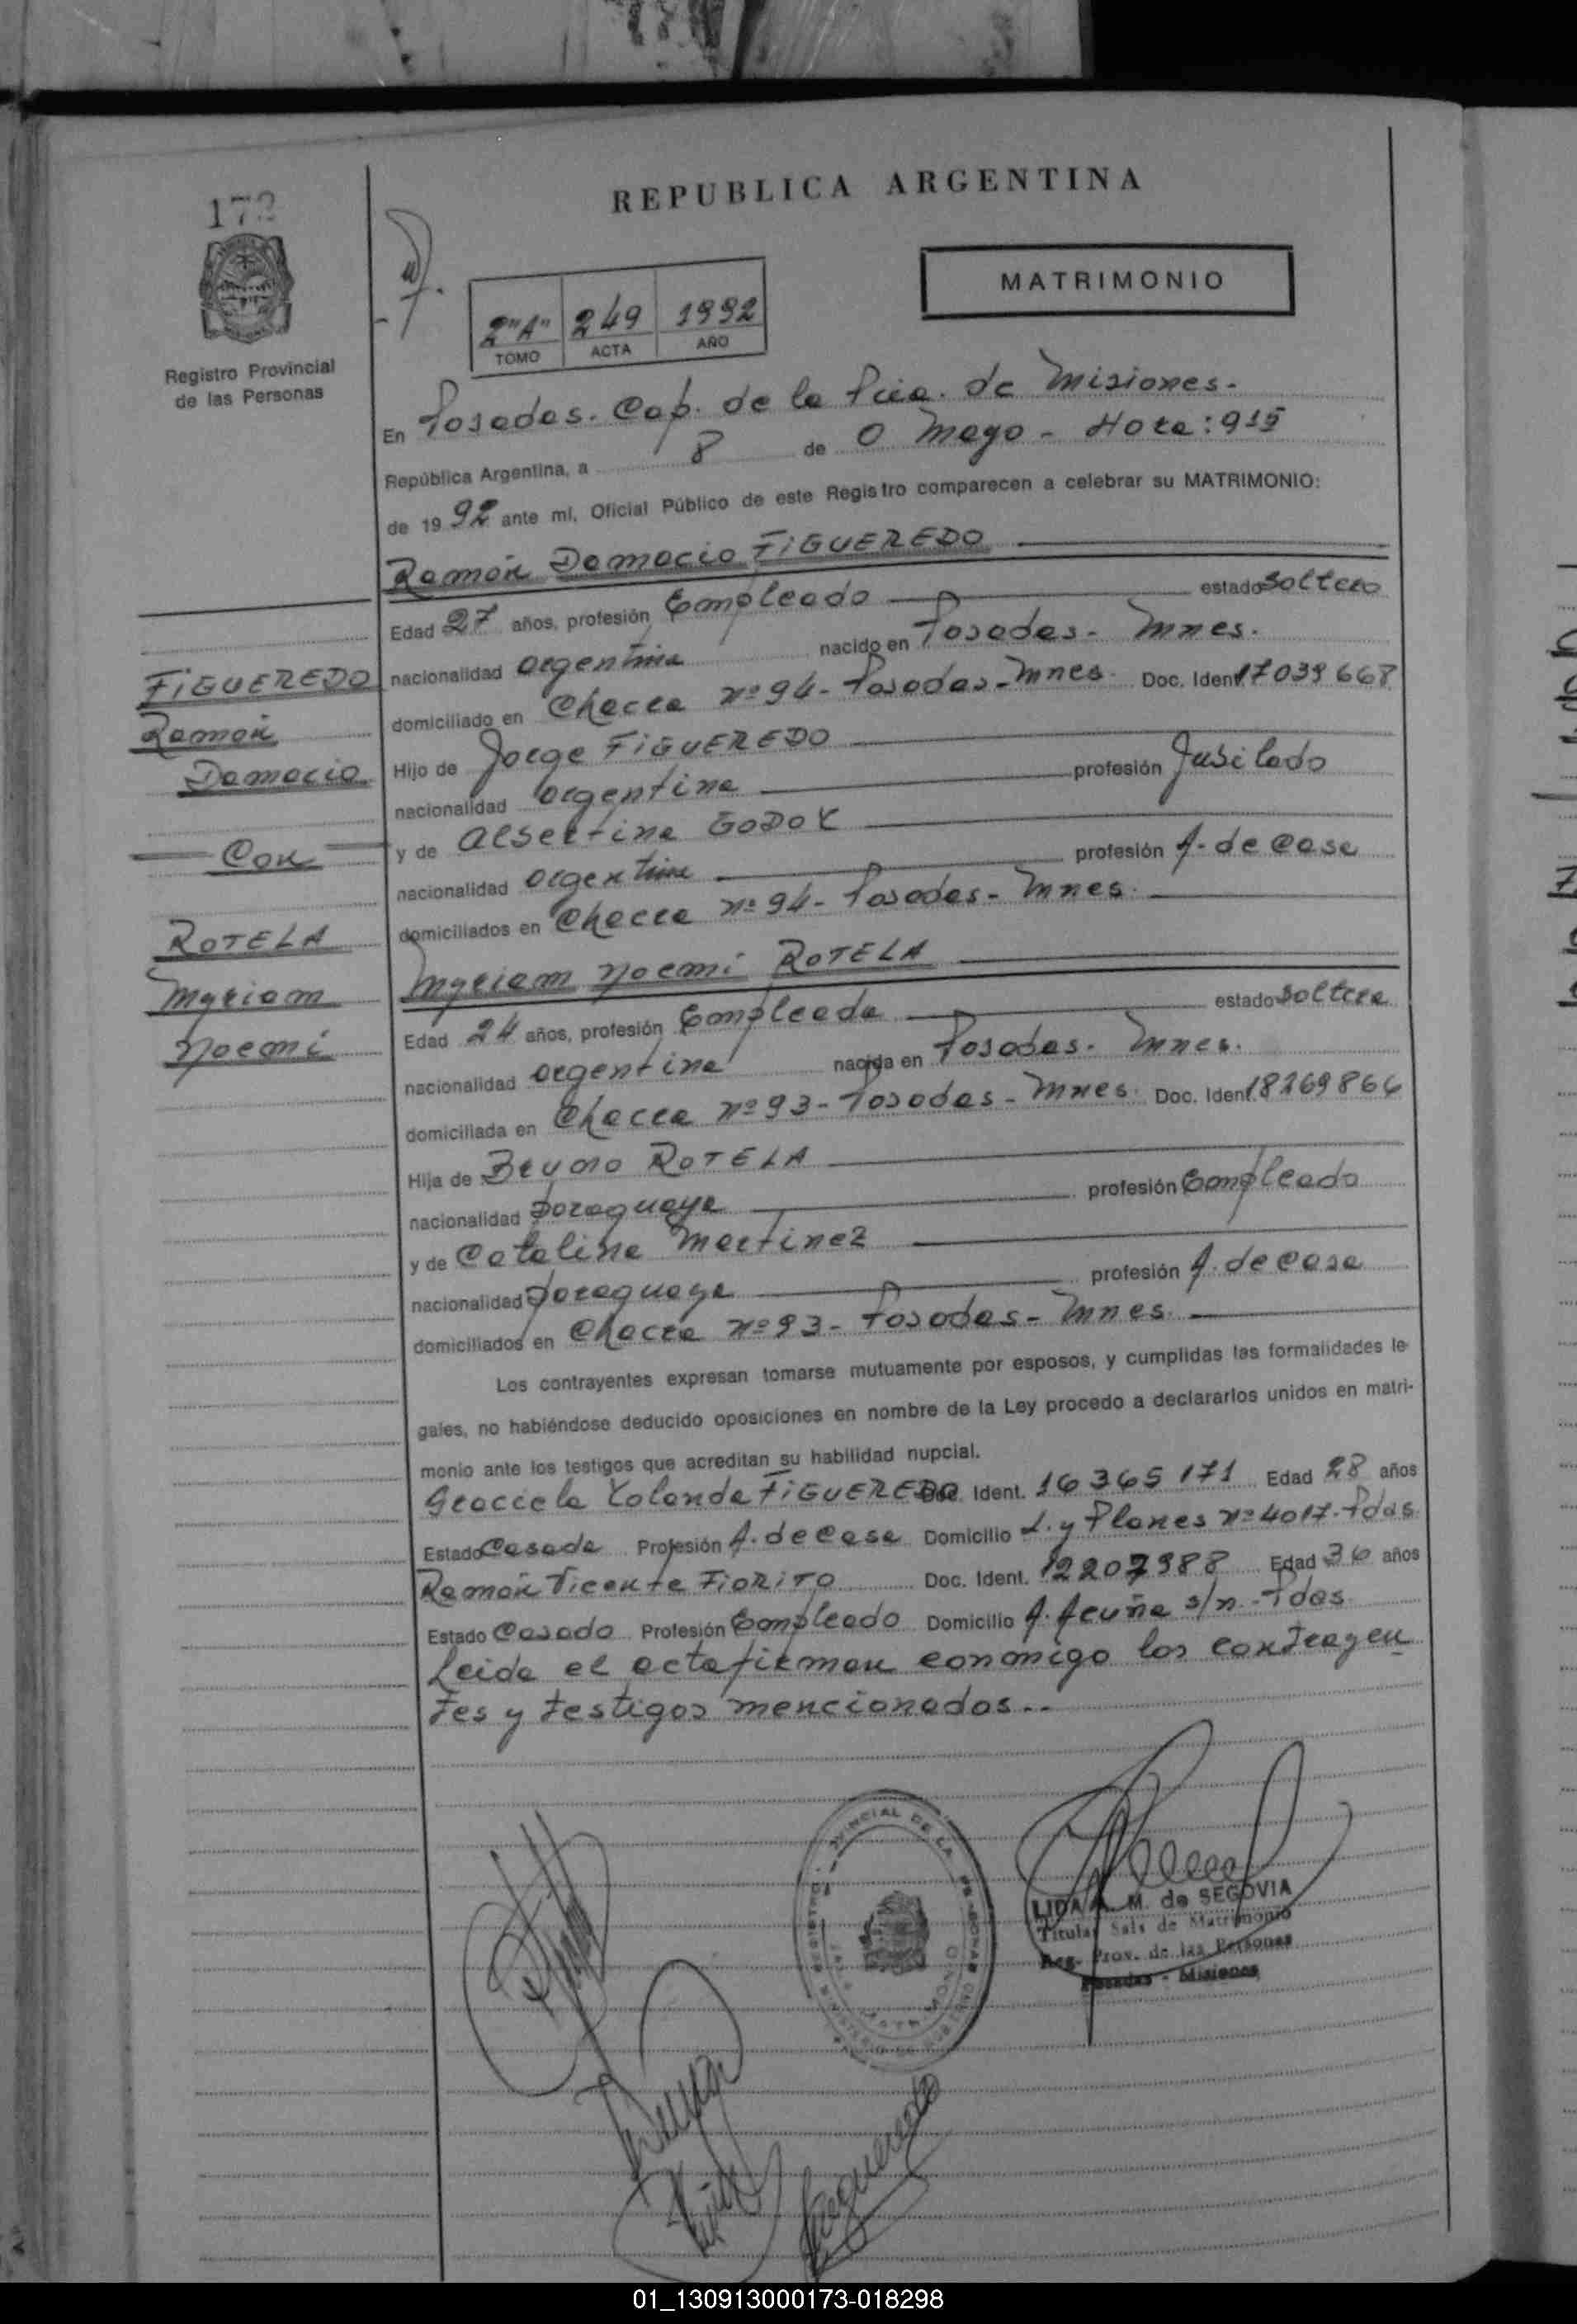 REPUBLICA ARGENTINA
172
MATRIMONIO
2"A" 249 1992
TOMO ACTA AÑO
Registro Provincial
de las Personas
En Posadas. Cap. de la Pcia. de Misiones.-
República Argentina, a 8 de Mayo - Hora: 915
de 1992 ante mí, Oficial Público de este Registro comparecen a celebrar su MATRIMONIO:
Ramón Damacio FIGUEREDO
Edad 27 años, profesión Empleado estado Soltero
nacionalidad argentina nacido en Posadas - Mnes.
domiciliado en Chacra nº 94 - Posadas - Mnes. Doc. Ident. 17039668
Hijo de Jorge FIGUEREDO
nacionalidad argentina profesión Jubilado
y de Albertina GODOY
nacionalidad argentina profesión A. de Casa
domiciliados en Chacra nº 94 - Posadas - Mnes.
Myriam Noemi ROTELA
Edad 24 años, profesión Empleada estado Soltera
nacionalidad argentina nacida en Posadas - Mnes.
domiciliada en Chacra nº 93 - Posadas - Mnes. Doc. Ident. 18269864
Hija de Bruno ROTELA
nacionalidad paraguaya profesión Empleado
y de Catalina Martinez
nacionalidad paraguaya profesión A. de Casa
domiciliados en Chacra nº 93 - Posadas - Mnes.
FIGUEREDO
Ramón
Damacio
Con
ROTELA
Myriam
Noemi
Los contrayentes expresan tomarse mutuamente por esposos, y cumplidas las formalidades le-
gales, no habiéndose deducido oposiciones en nombre de la Ley procedo a declararlos unidos en matri-
monio ante los testigos que acreditan su habilidad nupcial.
Graciela Yolanda FIGUEREDO Doc. Ident. 16365171 Edad 28 años
Estado Casada Profesión A. de Casa Domicilio L. y Planes nº 4017 - Pdas
Ramón Vicente FIORITO Doc. Ident. 12207988 Edad 36 años
Estado Casado Profesión Empleado Domicilio A. Acuña s/n - Pdas
Leida el acta firman conmigo los contrayen
tes y testigos mencionados..
LIDA M. de SEGOVIA
Titular Sala de Matrimonio
Reg. Prov. de las Personas
Posadas - Misiones
01_130913000173-018298